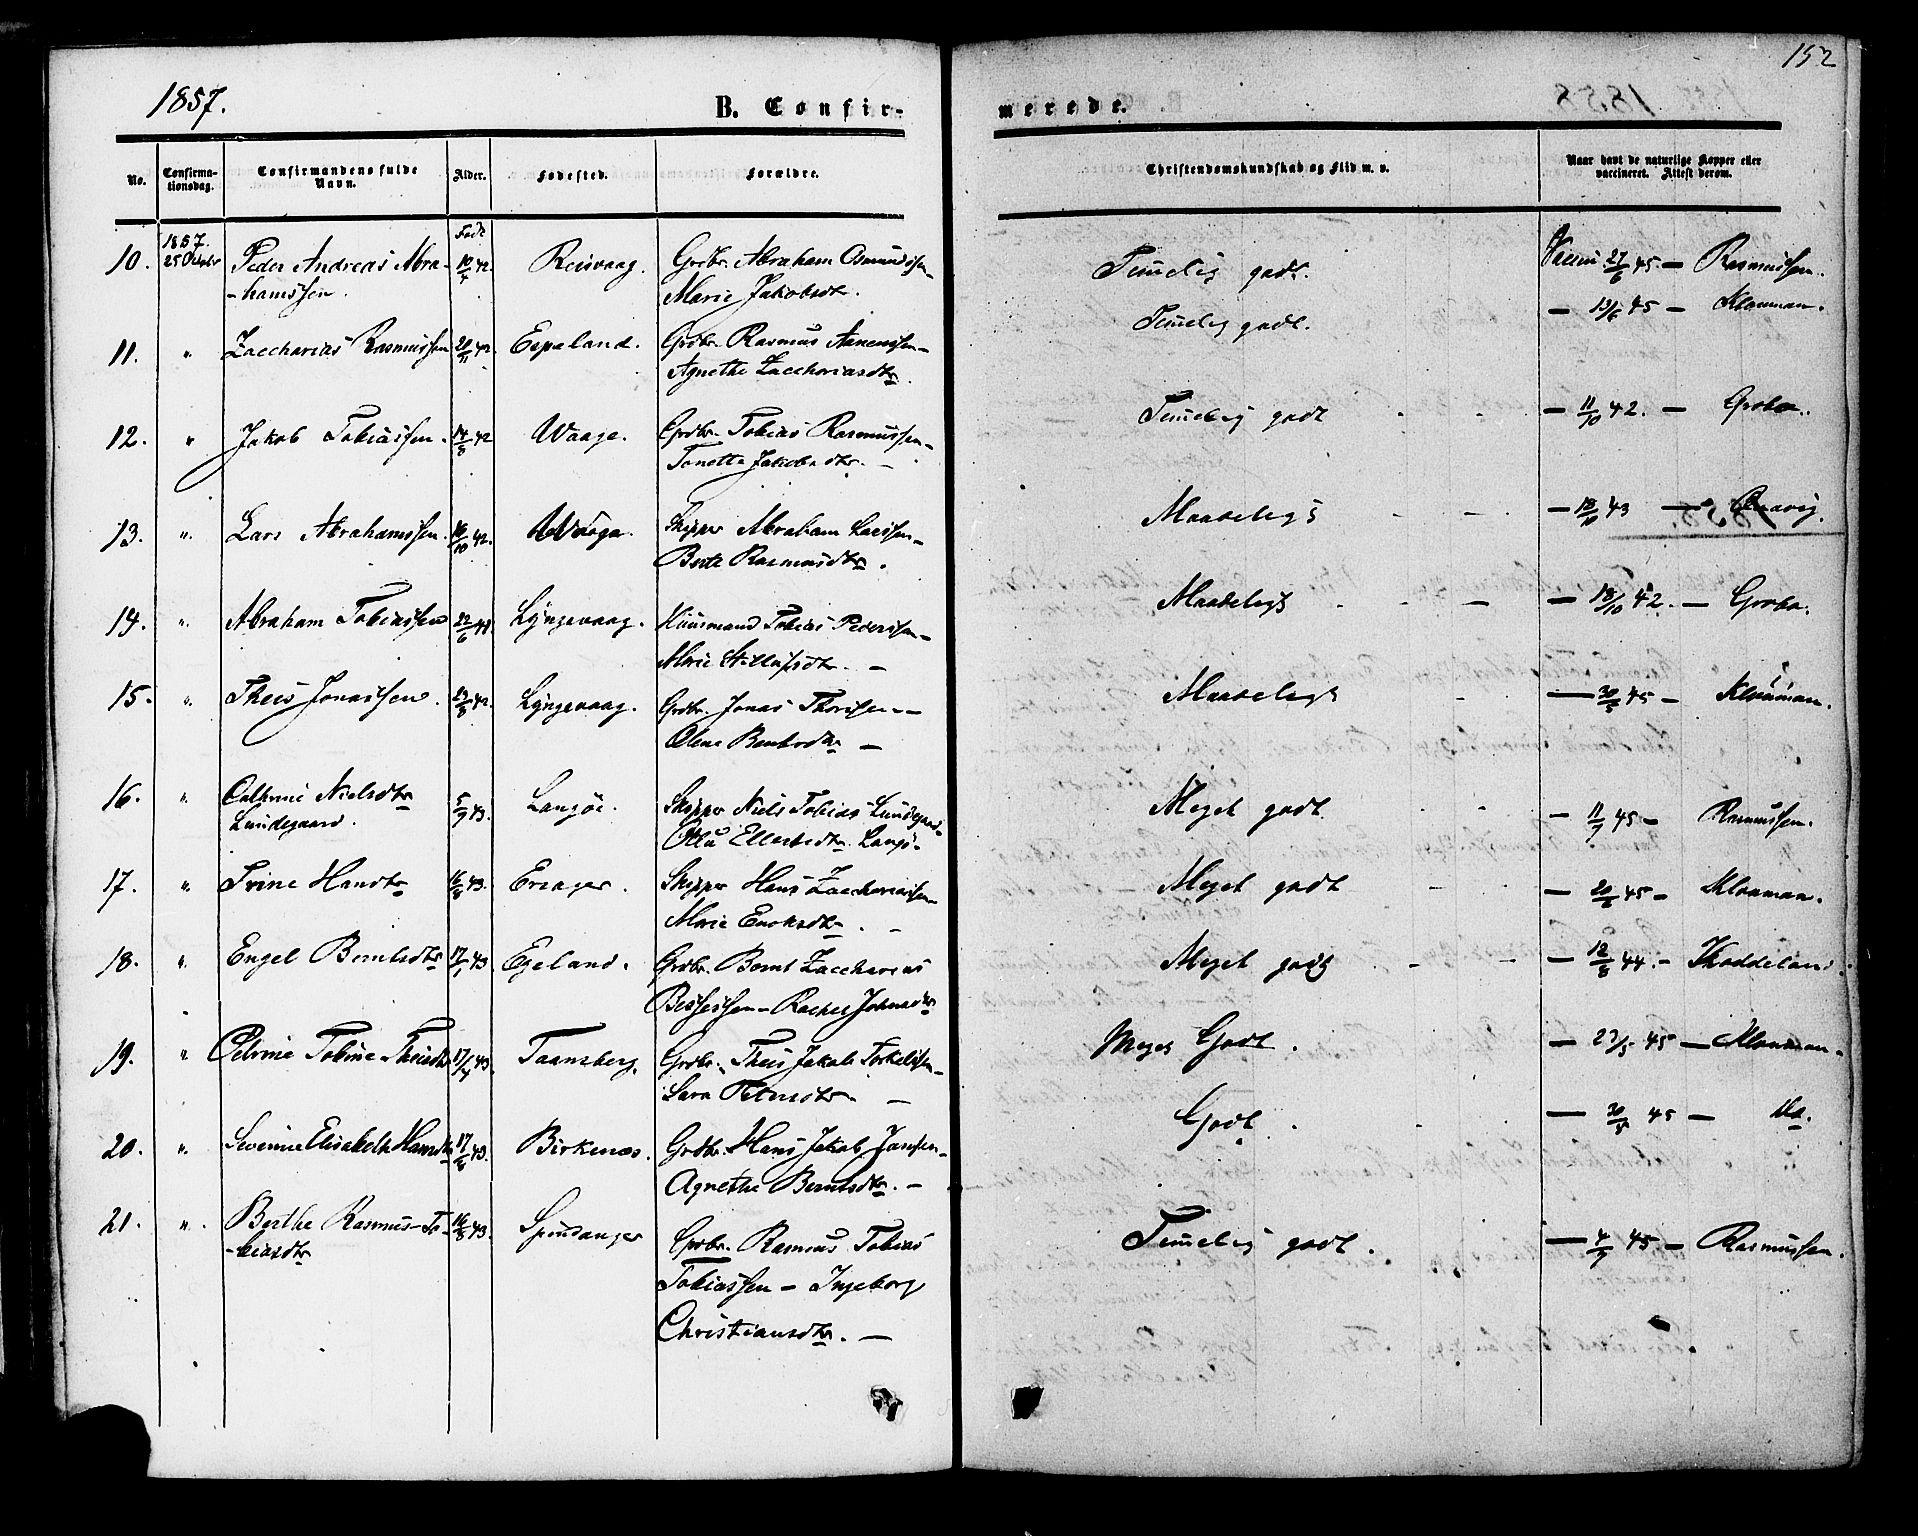 152
1857.
B. Confir-
merede.
No.
Confirma-
tionsdag.
Confirmandens fulde
Navn.
Alder.
Fødested.
Forældre.
Christendomskundskab og Flid m. v.
Naar havt de naturlige Kopper eller
vaccineret. Attest derom.
10. 1857. 25 Octobr Peder Andreas Abra- Født 10/4 42. Reisvaag. Grdbr. Abraham Osmundssen-
-hamssen. Marie Jakobsdtr.
Temelig godt. Vaccin 27/6 45. — Rasmussen.
11. " Zaccharias Rasmussen 20/11 42. Espeland. Grdbr. Rasmus Aanenssen-
Agnethe Zacchariasdtr.
Temelig godt. — 13/6 45 — Klouman.
12. " Jakob Tobiassen. 14/8 42 Waage. Grdbr. Tobias Rasmussen-
Tonette Jakobsdtr. —
Temelig godt — 11/10 42. — Grobo.
13. " Lars Abrahamssen. 16/10 42. Waage. Skipper Abraham Larssen-
Berte Rasmusdtr.
Maadeligt — 18/10 43 —
14. " Abraham Tobiassen 22/6 41. Lyngsvaag. Huusmand Tobias Pederssen-
Marie dtr. —
Maadeligt — 18/10 42. — Grobo.
15. " Theis Jonassen. 29/8 42. Lyngsvaag. Grdbr. Jonas Thorissen —
Olene Berntsdtr —
Maadeligt — 30/5 45 — Kloumann.
16. " Cathrine Nielsdtr 5/9 43. Langøe. Skipper Niels Tobias Lundegaard-
Lundegaard. Ellertsdtr. Langø.
Meget godt. — 11/7 45 — Rasmussen.
17. " Trine Hansdtr 16/8 43. Eraager. Skipper Hans Zacchariassen-
Marie Enoksdtr. —
Meget godt — 20/6 45 — Kloumann.
18. " Engel Berntsdtr 17/1 43 Egeland. Grdbr. Bernt Zaccharias
Bessesen — Rachel Johnsdtr
Meget godt — 12/8 44. — Skoddeland.
19. " Petrine Tobine Theisdtr 17/4 43 Taansberg. Grdbr. Theis Jakob Torkelssen-
Sara Petersdtr. —
Meget Godt. — 23/5 45 — Kloumann.
20. " Severine Elisabeth Hansdtr 17/8 43. Birkenæs. Grdbr. Hans Jakob Janssen-
Agnethe Berntsdtr. —
Godt. — 30/5 45 — Do.
21. " Berthe Rasmus-To- 16/8 43. Spindanger Grdbr. Rasmus Tobias
-biasdtr Tobiassen — Ingeborg
Christiansdtr. —
Temelig godt. — 4/7 45 — Rasmussen.